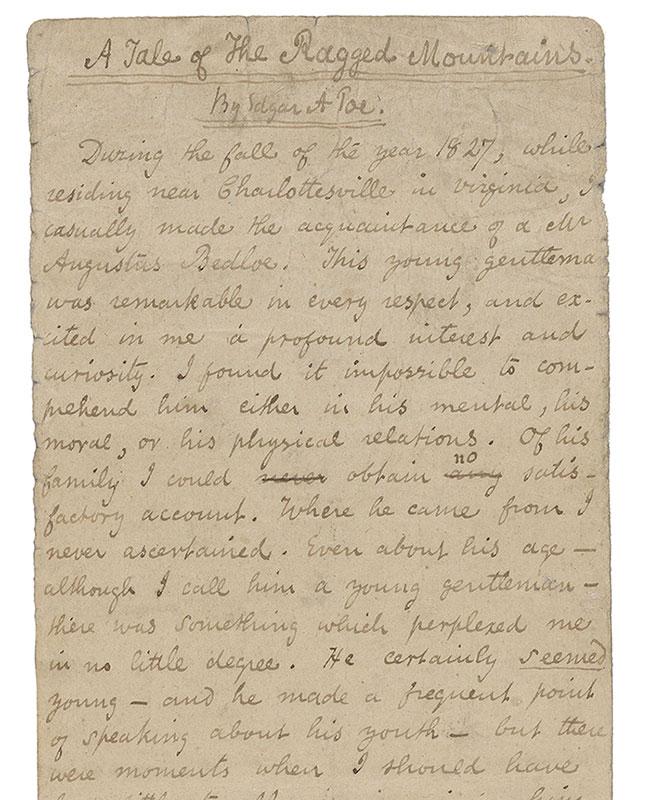 A Tale of The Ragged Mountains.
By Edgar A Poe.
During the fall of the year 1827, while
residing near Charlottesville in Virginia, I
casually made the acquaintance of a Mr
Augustus Bedloe. This young gentlema
was remarkable in every respect, and ex-
cited in me a profound interest and
curiosity. I found it impossible to com-
prehend him either in his mental, his
moral, or his physical relations. Of his
family I could never obtain any no satis-
factory account. Where he came from I
never ascertained. Even about his age —
although I call him a young gentleman —
there was something which perplexed me
in no little degree. He certainly seemed
young — and he made a frequent point
of speaking about his youth — but there
were moments when I should have